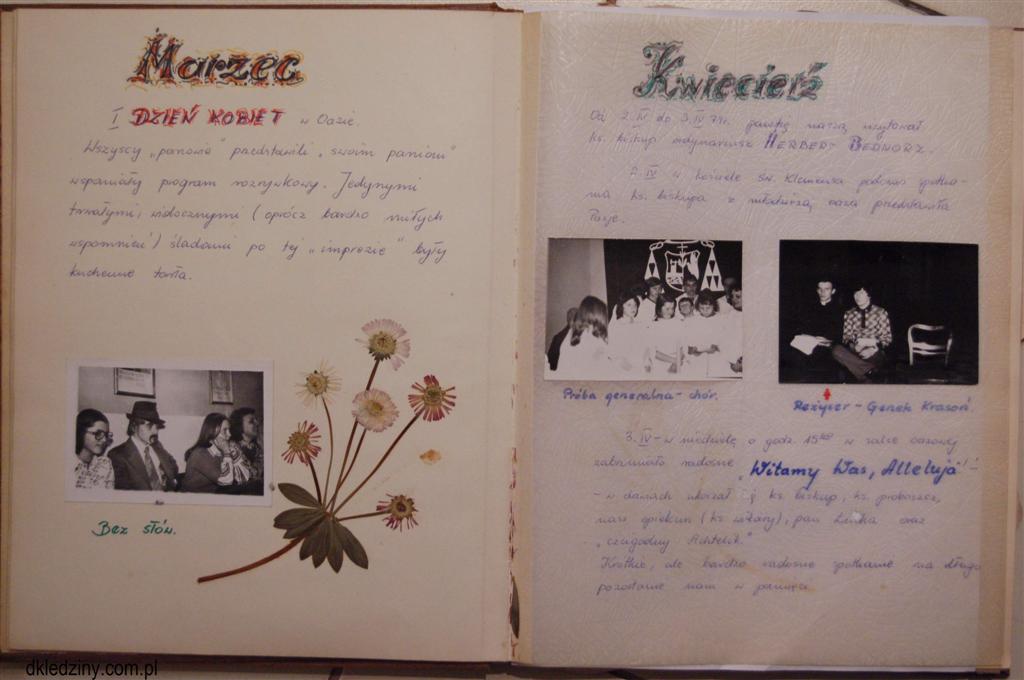 Marzec
I DZIEŃ KOBIET w Oazie.
Wszyscy „panowie" przedstawili „swoim paniom"
wspaniały program rozrywkowy. Jedynymi
trwałymi, widocznymi (oprócz bardzo miłych
wspomnień) śladami po tej „imprezie" były
kuchenne
Bez słów.
Kwiecień
Od 2.IV do 3.IV 77r. parafię naszą wizytował
ks. biskup ordynariusz HERBERT BEDNORZ.
2.IV w kościele św. Klemensa podczas spotka-
nia ks. biskupa z młodzieżą oaza przedstawiła
Pasję.
Próba generalna - chór.
Reżyser - Genek Krasoń.
3.IV - w niedzielę o godz. 15 w salce oazowej
zabrzmiało radosne „Witamy Was, Alleluja"!!
- w drzwiach ukazał się ks. biskup, ks. proboszcz,
nasz opiekun (ks. wikary), pan Linka oraz
„czcigodny Achtelik."
Krótkie, ale bardzo radosne spotkanie na długo
pozostanie nam w pamięci.
dkledziny.com.pl